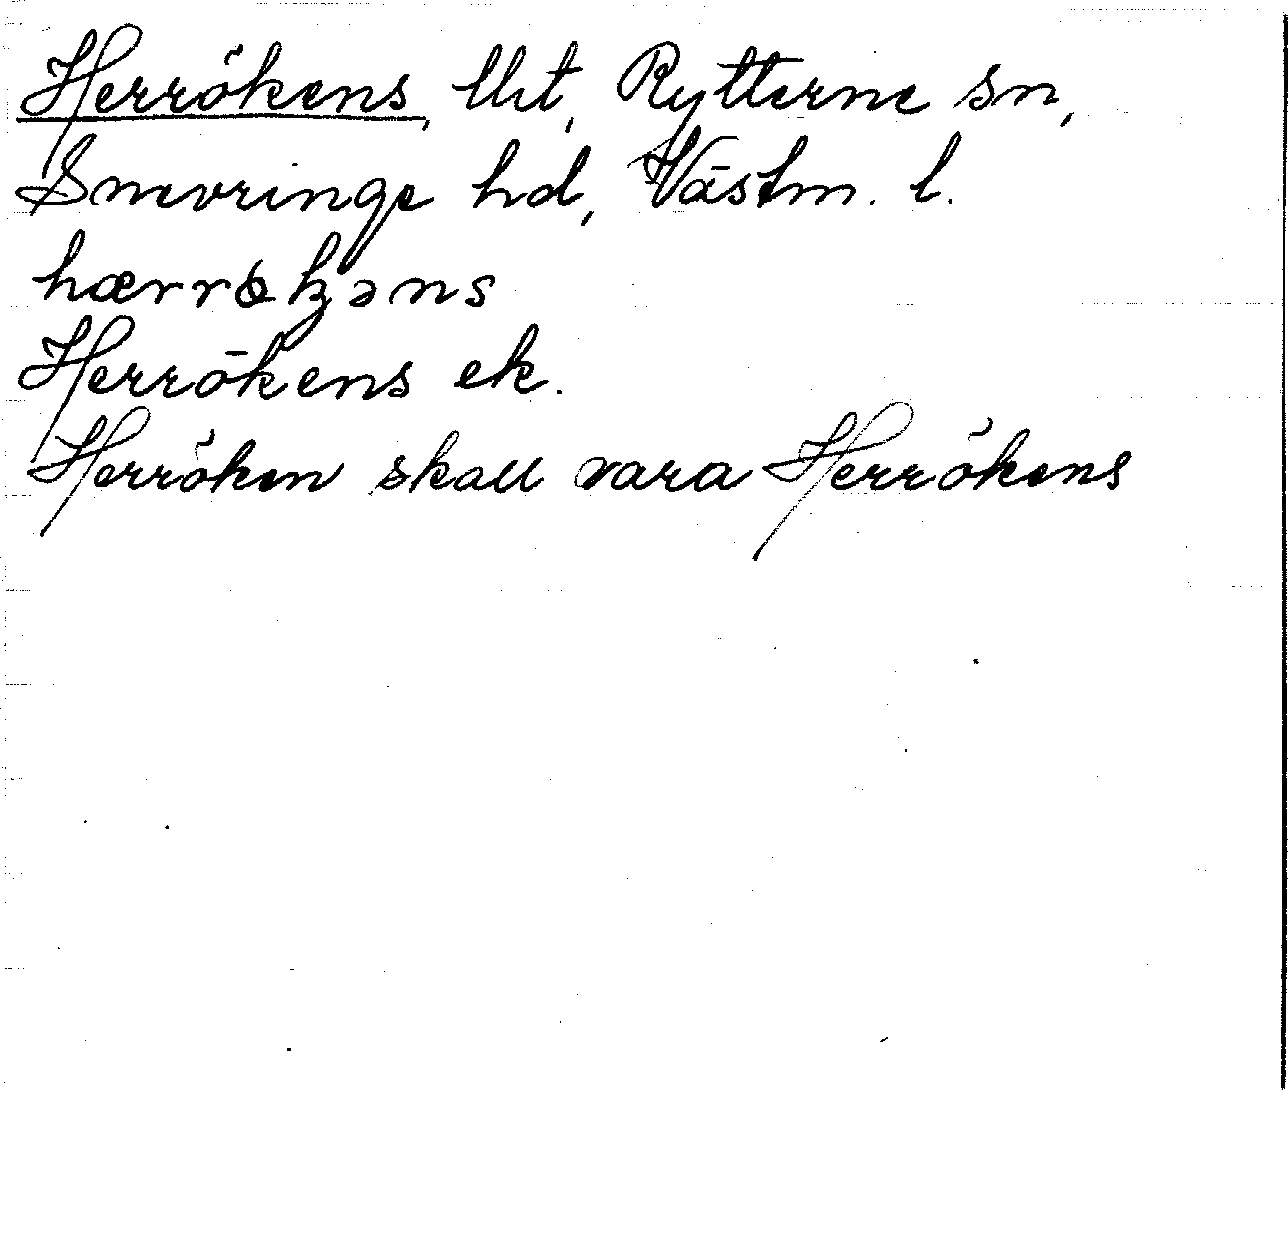 Herrökens, lht, Rytterne sn,
Snevringe hd, Västm. l.
Herrökens ek.
Herröken skall vara Herrökens